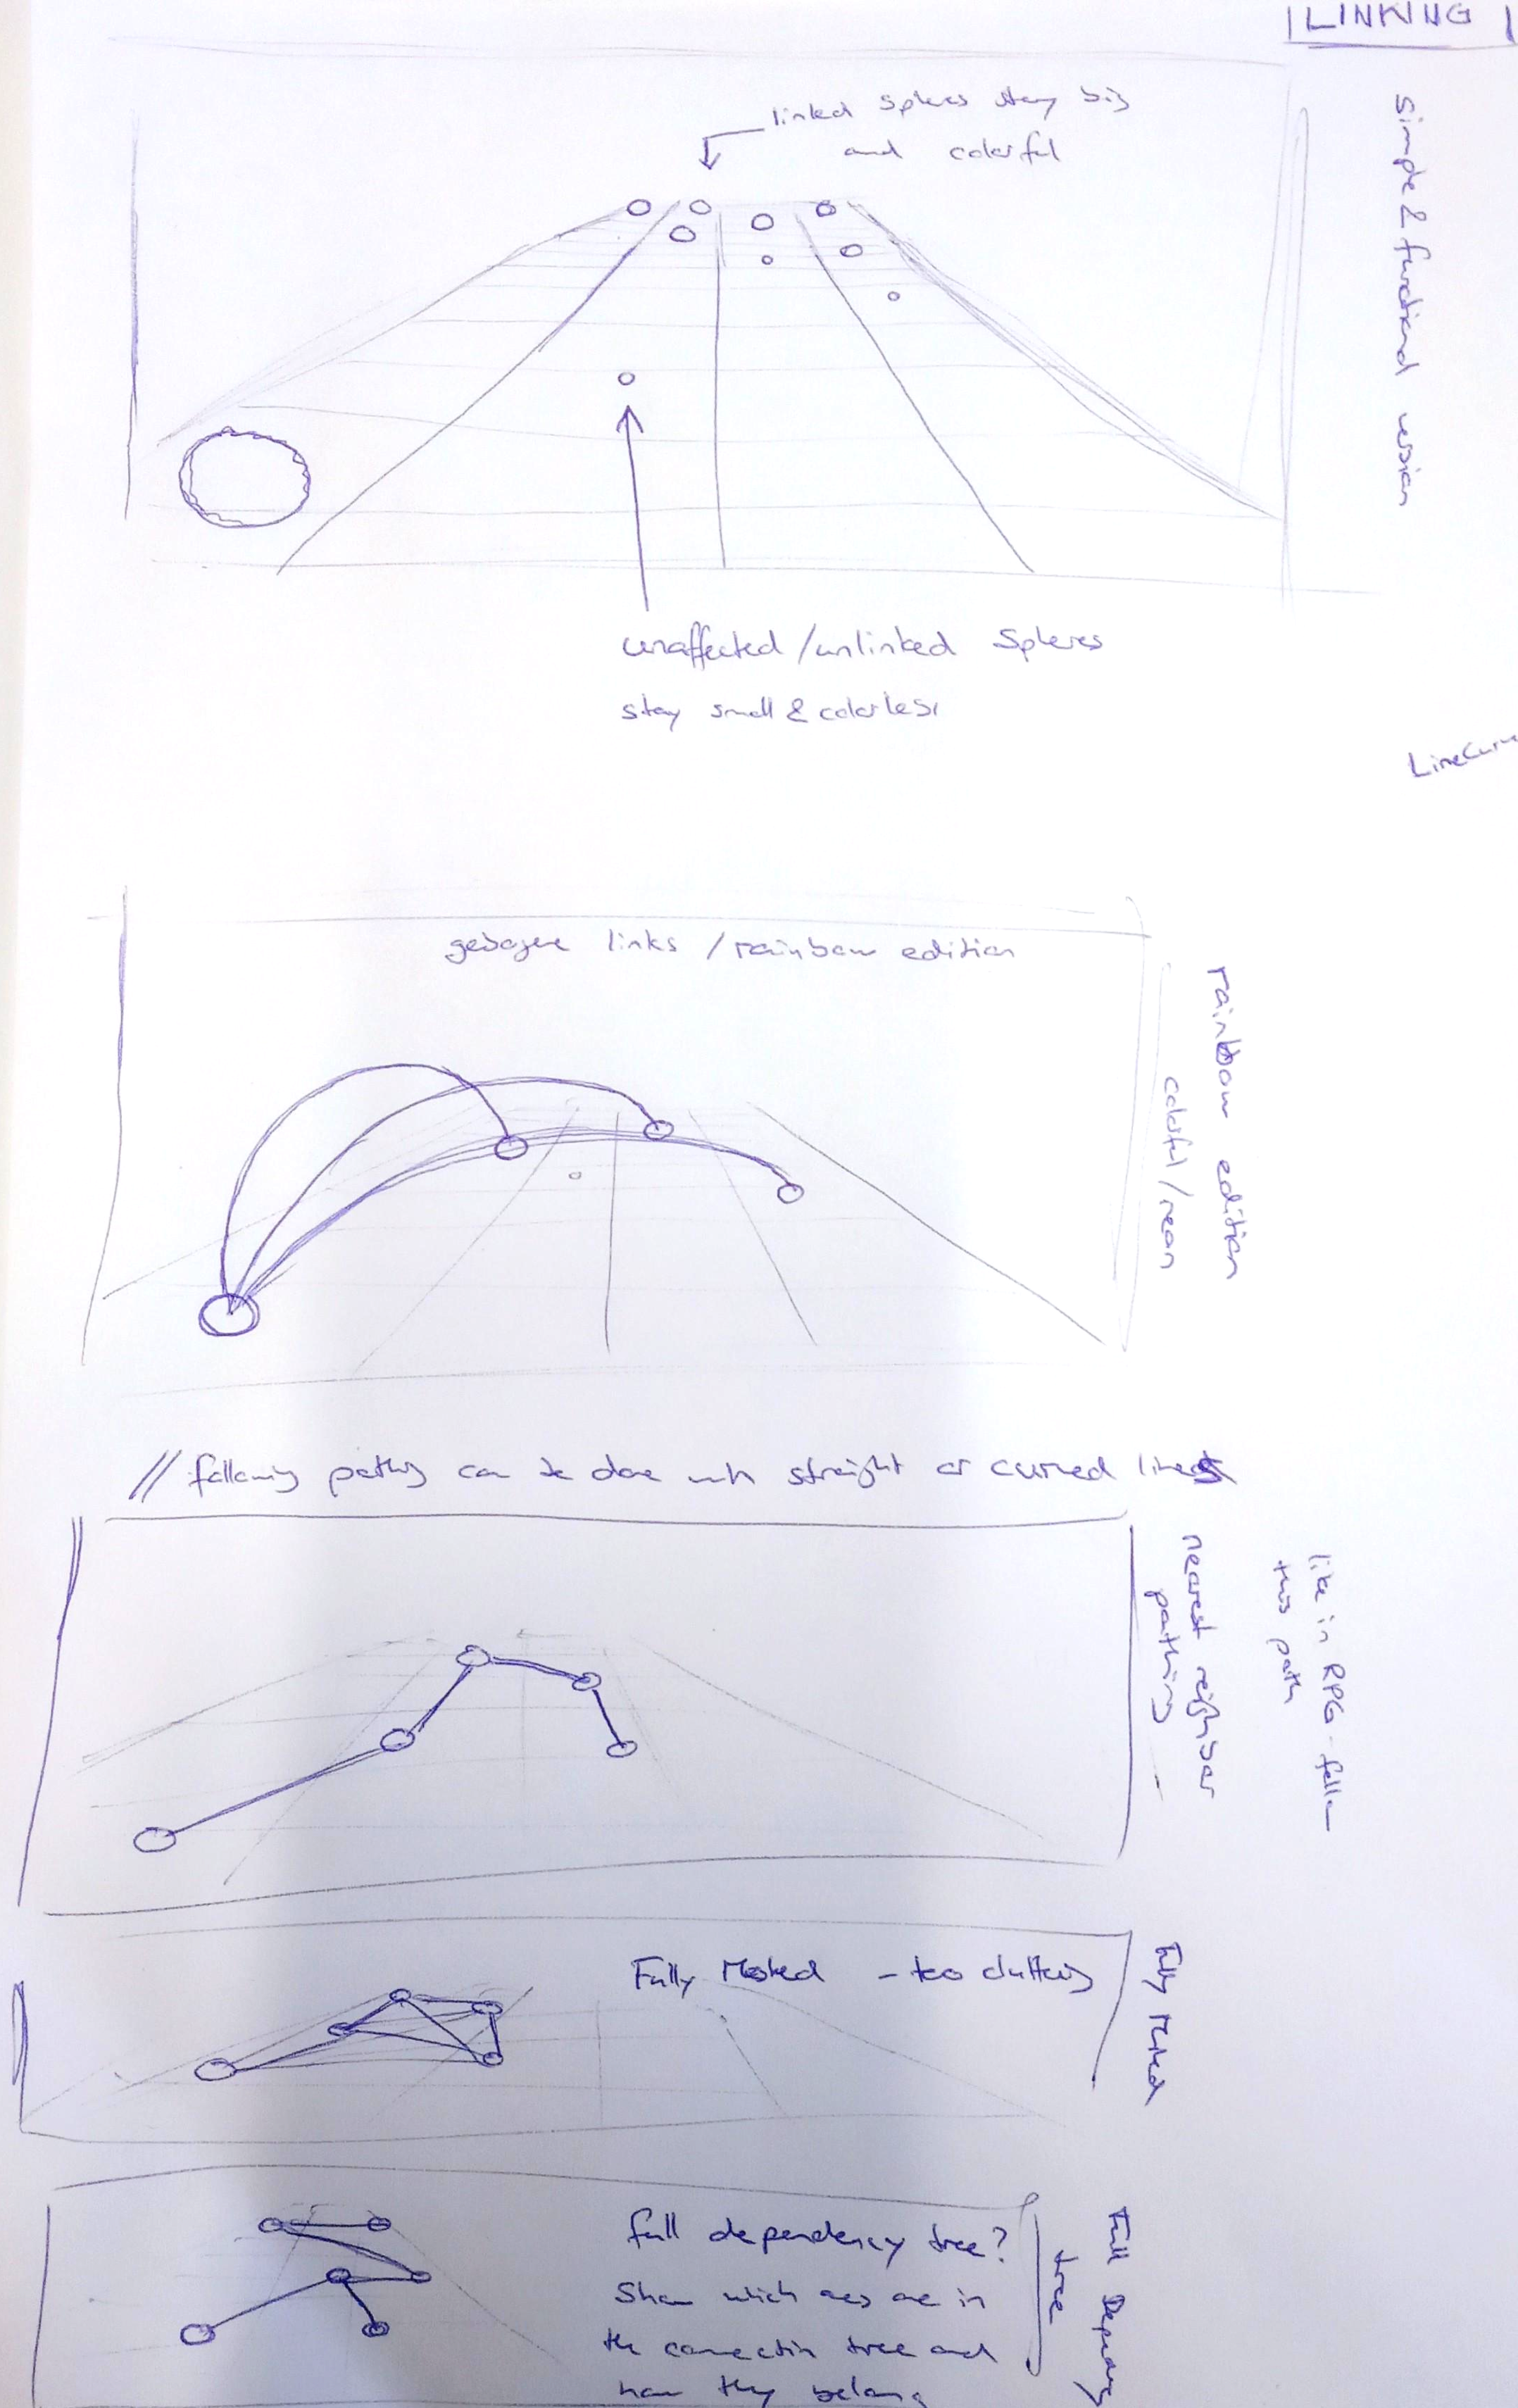 LINKING
linked spheres stay big
and colorful
simple & functional version
unaffected / unlinked Spheres
stay small & colorless
LineCurv
links / rainbow edition
rainbow edition
colorful / neon
// following paths can be done with straight or curved lines
nearest neighbor
pathing
like in RPG - follow
this path
Fully Meshed - too cluttery
Fully Meshed
full dependency tree?
Show which ones are in
the connection tree and
how they belong
Full Dependency
tree